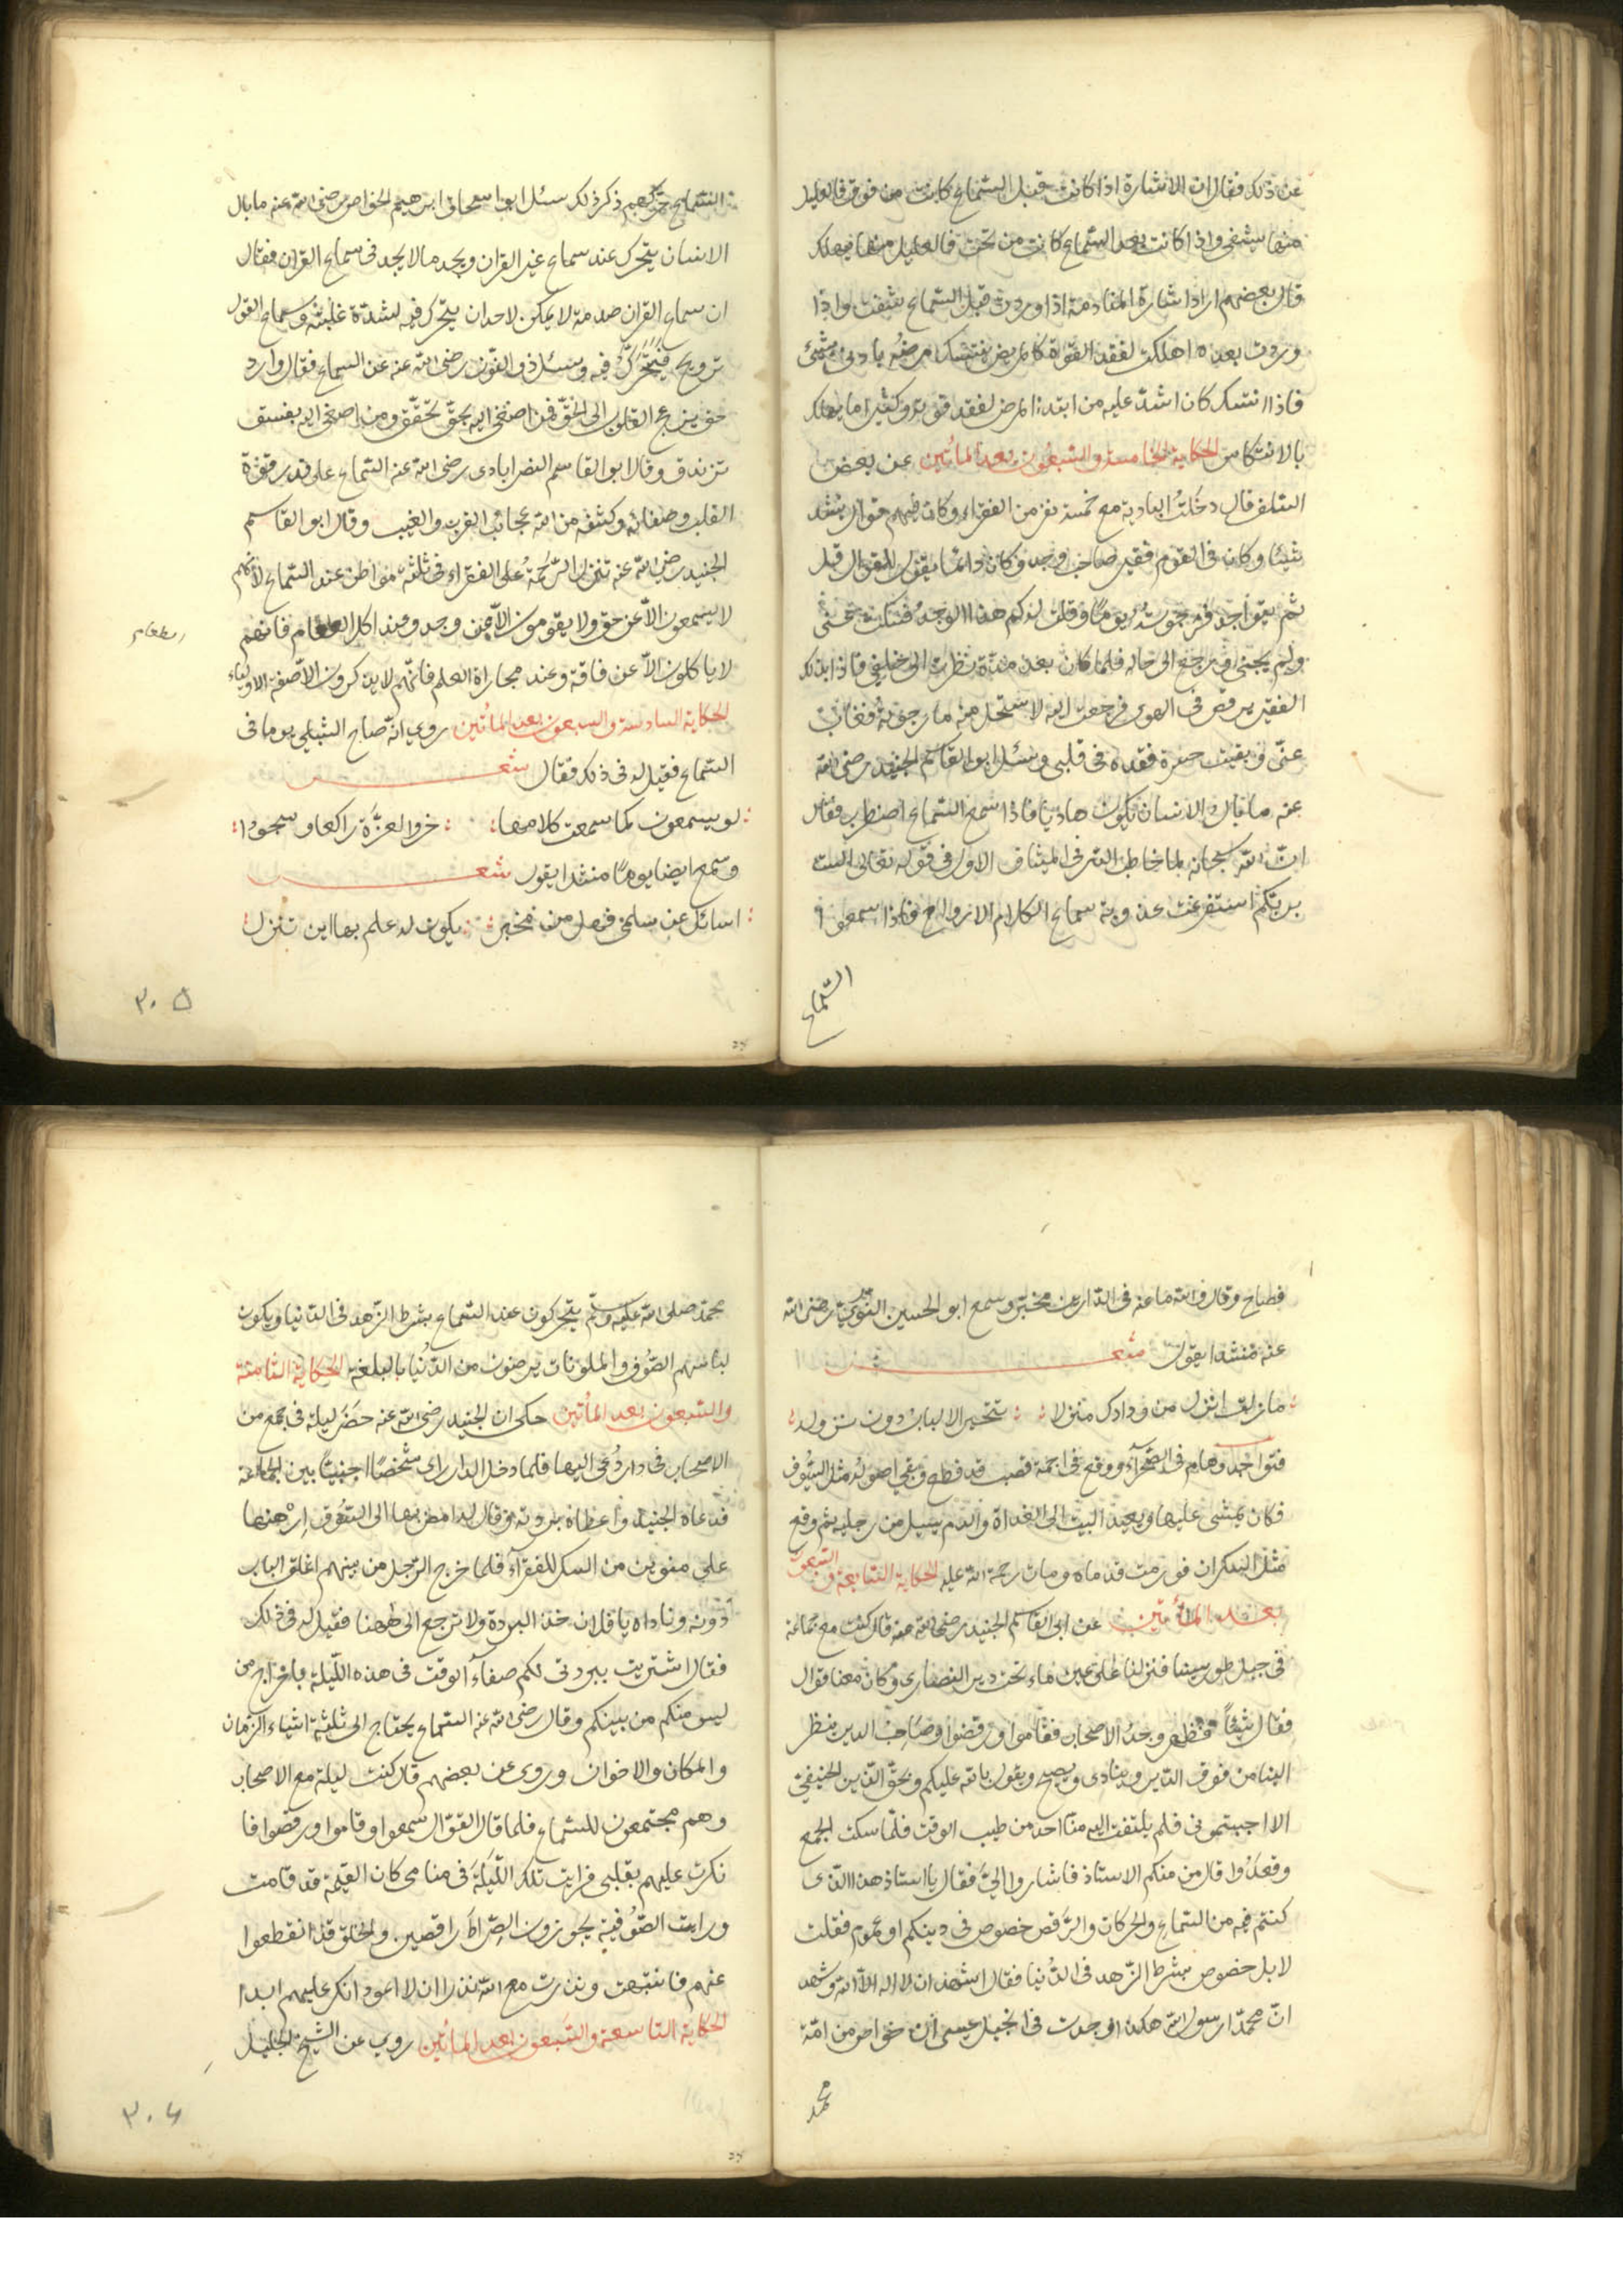 عن ذلك فقال ان الاشارة اذا كانت قبل السماع كانت من فوق فالعليل
منها يشفى واذا كانت بعد السماع كانت من تحت فالعليل منها يهلك
قال بعضهم اراد اشارة المنادمة اذا وردت قبل السماع يثقف واذا
وردت بعده اهلكت لفقد القوة كالمريض ينتكس مرضه بادنى شئ
فاذا انتكس كان اشد عليه من ابتداء المرض لفقد قوته وكثيرا ما يهلك
بالانتكاس الحكاية الخامسة والسبعون بعد المأتين عن بعض
السلف قال دخلت البادية مع خمسة نفر من الفقراء وكان فيهم قوال ينشد
شيئا وكان فى القوم فقير صاحب وجد وكان دائما يقول للقوال قل
ولم يجبنى ورجع الى حاله فلما كان بعد مدة نظرت الى خلفى فاذا بذلك
الفقير يرقص فى الهوى فرجعت اليه لاستحل منه ما رجوته فغاب
عنى وبقيت حسرة فقده فى قلبى وسئل ابو القاسم الجنيد رضى الله
عنه ما بال الانسان يكون هاديا فاذا سمع السماع اضطرب فقال
ان الله سبحانه لما خاطب الذر فى الميثاق الاول فى قوله تعالى الست
بربكم استفرغت عذوبة سماع الكلام الارواح فاذا سمعوا
السماع
السماع حركهم ذكر ذلك سئل ابو اسحاق ابرهيم الخواص رضى الله عنه ما بال
الانسان يتحرك عند سماع غير القران ويجد ما لا يجد فى سماع القران فقال
ان سماع القران صدمة لا يمكن لاحد ان يتحرك فيه لشدة غلبته وسماع القول
ترويح فيتحرك فيه وسئل ذو النون رضى الله عنه عن السماع فقال وارد
حق يزعج القلوب الى الحق فمن اصغى اليه بحق تحقق ومن اصغى اليه بنفسق
تزندق وقال ابو القاسم النصرابادى رضى الله عنه السماع على قدر قوة
القلب وصفائه وكشفه من الله عجائب القرب والغيب وقال ابو القاسم
الجنيد رضى الله عنه تنزل الرحمة على الفقراء فى ثلثة مواطن عند السماع لانهم
لا يسمعون الا عن حق ولا يقومون الا عن وجد وعند اكل الطعام فانهم
الطعام
لا ياكلون الا عن فاقة وعند مجاراة العلم فانهم لا يذكرون الا صفة الاولياء
الحكاية السادسة والسبعون بعد المأتين روى انه صاح الشبلى يوما فى
السماع فقيل له فى ذلك فقال شعر
لو يسمعون كما سمعت كلامها خروا لعزة راكعا وسجودا
وسمع ايضا يوما منشدا يقول شعر
اسائل عن سلمى فهل من مخبر يكون له علم بها اين تنزل
٣٠٥
فصاح وقال والله ما عنه فى الدارين مخبر وسمع ابو الحسين النورى رضى الله
عنه منشدا يقول شعر
ما زلت انزل من ودادك منزلا تتحير الالباب دون نزوله
فتواجد وهام فى الصحراء ووقع فى اجمة قصب قد قطع وبقى اصوله مثل السيوف
فكان يمشى عليها ويعيد البيت الى الغداة والدم يسيل من رجليه ثم وقع
مثل السكران فورمت قدماه ومات رحمة الله عليه الحكاية السابعة والسبعون
بعد المأتين عن ابى القاسم الجنيد رضى الله عنه قال كنت مع جماعة
فى جبل طور سينا فنزلنا على عين ماء تحت دير النصارى وكان معنا قوال
فقال شيئا فظهر وجد الاصحاب فقاموا ورقصوا وصاحب الدير ينظر
الينا من فوق الدير وينادى ويصيح ويقول بالله عليكم وبحق الدين الحنيفى
الا اجبتمونى فلم يلتفت اليه منا احد من طيب الوقت فلما سكت الجمع
وقعدوا قال من منكم الاستاذ فاشاروا الى فقال يا استاذ هذا الذى
كنتم فيه من السماع والحركات والرقص خصوص فى دينكم او عموم فقلت
لا بل خصوص بشرط الزهد فى الدنيا فقال اشهد ان لا اله الا الله واشهد
ان محمدا رسول الله هكذا وجدت فى انجيل عيسى ان خواص من امة
محمد
محمد صلى الله عليه وسلم يتحركون عند السماع بشرط الزهد فى الدنيا ويكون
لباسهم الصوف والملونات يرضون من الدنيا بالبلغة الحكاية الثامنة
والسبعون بعد المأتين حكى ان الجنيد رضى الله عنه حضر ليلة فى جمع من
الاصحاب فى دار دعى اليها فلما دخل الدار راى شخصا اجنبيا بين الجماعة
فدعاه الجنيد واعطاه بردته وقال له امض بها الى السوق ارهنها
على منوين من السكر للفقراء فلما خرج الرجل من بينهم اغلق الباب
دونه وناداه يا فلان خذ البردة ولا ترجع الى ههنا فقيل له فى ذلك
فقال اشتريت ببردتى لكم صفاء الوقت فى هذه الليلة باخراج من
ليس منكم من بينكم وقال رضى الله عنه السماع يحتاج الى ثلثة اشياء الزمان
والمكان والاخوان وروى عن بعضهم قال كنت ليلة مع الاصحاب
وهم مجتمعون للسماع فلما قال القوال سمعوا وقاموا ورقصوا فا
نكرت عليهم بقلبى فرايت تلك الليلة فى منامى كان القيمة قد قامت
ورايت الصوفية يجوزون الصراط راقصين والخلق قد انقطعوا
عنهم فانتبهت ونذرت مع الله نذرا ان لا اعود انكر عليهم ابدا
الحكاية التاسعة والسبعون بعد المأتين روى عن الشيخ الجليل
٣٠٦